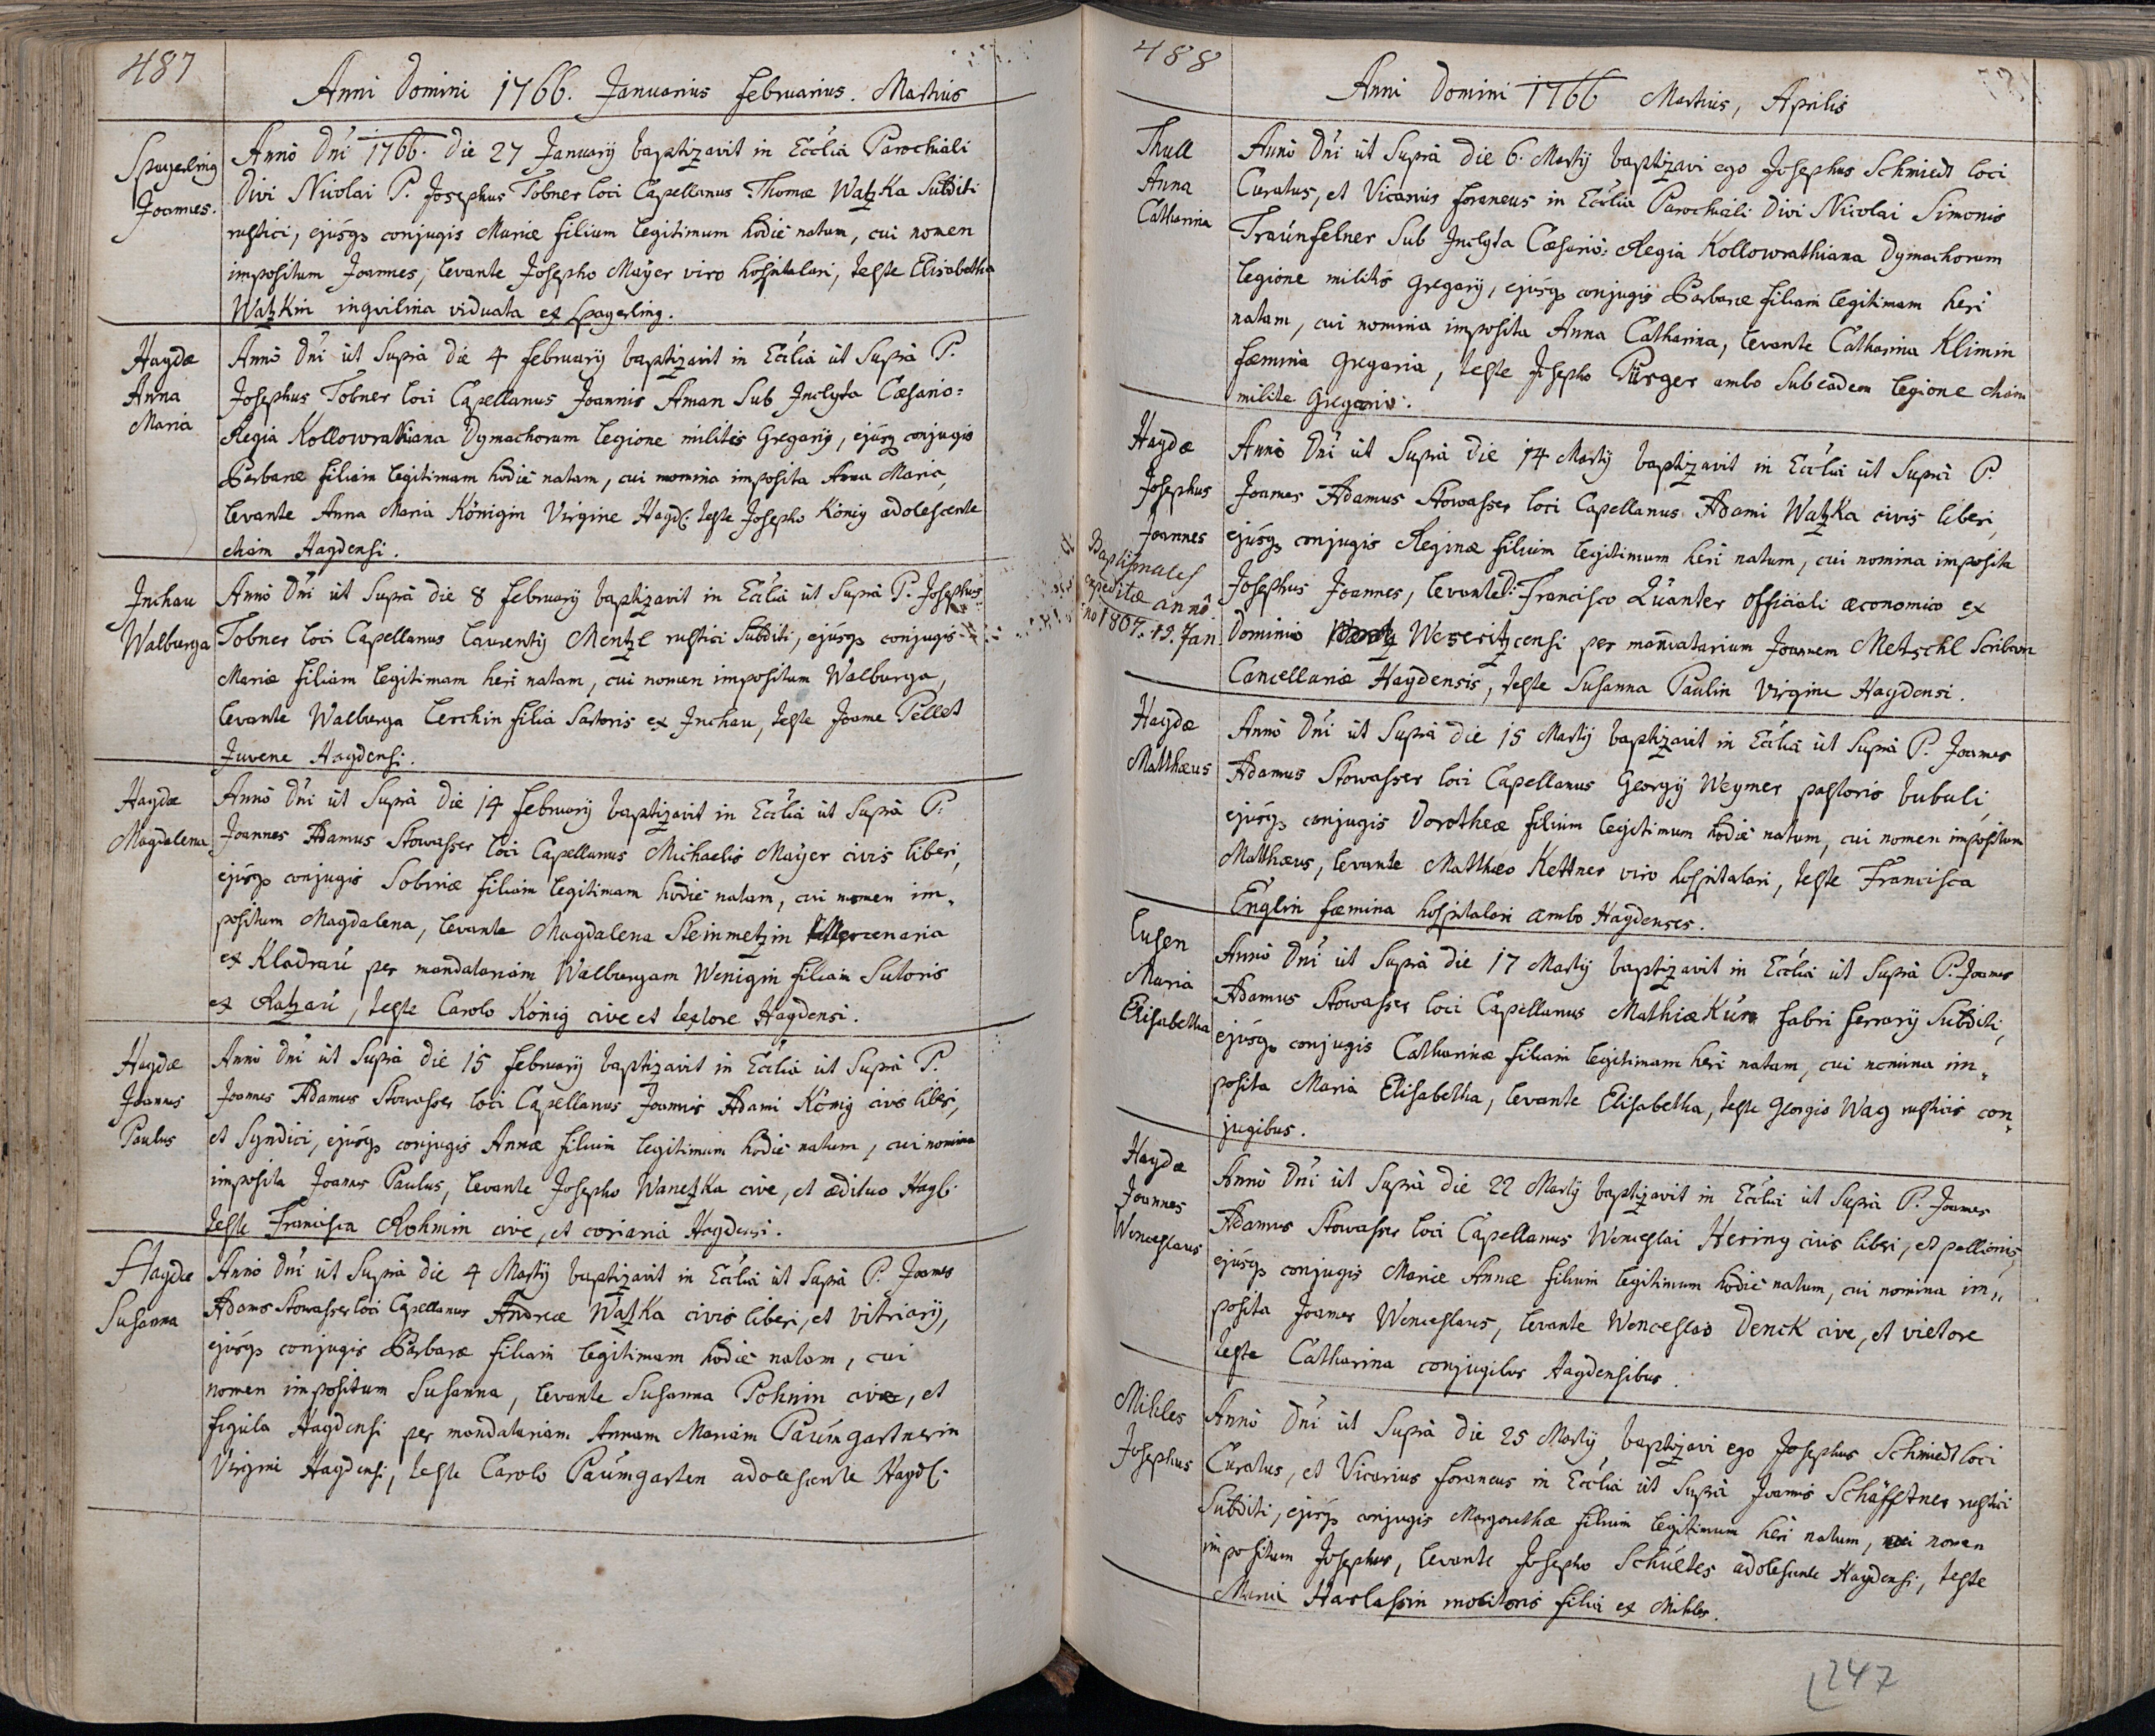 487
Anni Domini 1766. Januarius Februarius. Martius
Spagerling
Joannes.
Anno Dni 1766. Die 27 January baptizavit in Ecclia Parochiali
Divi Nicolai P. Josephus Tobner loci Capellanus Thomæ Watzka Subditi
rustici, ejusq conjugis Mariæ filium legitimum hodie natum, cui nomen
impositum Joannes, levante Josepho Mayer viro hospitalari, teste Elisabetha
Watzkin inquilina viduata ex Spagerling.
Haydæ
Anna
Maria
Anno Dni ut Supra die 4 February baptizavit in Ecclia ut Supra P.
Josephus Tobner loci Capellanus Joannis Aman Sub Inclyta Cæsario=
Regia Kollowrathiana Dymachorum legione militis Gregary, ejusq conjugis
Barbaræ filiam legitimam hodie natam, cui nomina imposita Anna Maria,
levante Anna Maria Königin Virgine Hayd: teste Josepho König adolescente
etiam Haydensi.
Inchau
Walburga
Anno Dni ut Supra die 8 February baptizavit in Ecclia ut Supra P. Josephus
Tobner loci Capellanus Laurenty Mentzl rustici Subditi, ejusq conjugis
Mariæ filiam legitimam heri natam, cui nomen impositum Walburga,
levante Walburga Lerchin filia Sartoris ex Inchau, teste Joanne Pellet
Juvene Haydensi.
Haydæ
Magdalena
Anno Dni ut Supra die 14 February baptizavit in Ecclia ut Supra P.
Joannes Adamus Stowasser loci Capellanus Michaelis Mayer civis liberi,
ejusq conjugis Sobinæ filiam legitimam hodie natam, cui nomen im„
positum Magdalena, levante Magdalena Steinmetzin Mercenaria
ex Kladrau per mandatariam Walburgam Wenigin filiam Sutoris
ex Ratzau, teste Carolo König cive et textore Haydensi.
Haydæ
Joannes
Paulus
Anno Dni ut Supra die 15 February baptizavit in Ecclia ut Supra P.
Joannes Adamus Stowasser loci Capellanus Joannis Adami König civis liberi,
et Syndici, ejusq conjugis Annæ filium legitimum hodie natum, cui nomina
imposita Joannes Paulus, levante Josepho Wanetzka cive, et ædituo Hayd:
teste Francisca Rohmin cive, et coriaria Haydensi.
Haydæ
Susanna
Anno Dni ut Supra die 4 Marty baptizavit in Ecclia ut Supra P. Joannes
Adams Stowasser loci Capellanus Andreæ Watzka civis liberi, et vitriary,
ejusq conjugis Barbaræ filiam legitimam hodie natam, cui
nomen impositum Susanna, levante Susanna Pohnin cive, et
figula Haydensi per mandatariam Annam Mariam Paumgartnerin
Virgine Haydensi, teste Carolo Paumgarten adolescente Hayd:
488
Anni Domini 1766 Martius, Aprilis
Thull
Anna
Catharina
Anno Dni ut Supra die 6. Marty baptizavi ego Josephus Schmiedt loci
Curatus, et Vicarius foraneus in Ecclia Parochiali Divi Nicolai Simonis
Traunfelner Sub Inclyta Cæsario: Regia Kollowrathiana Dymachorum
legione militis Gregary, ejusq conjugis Barbaræ filiam legitimam heri
natam, cui nomina imposita Anna Catharina, levante Catharina Klimin
fæmina Gregaria, teste Josepho Pürger ambo Sub eadem legione etiam
milite Gregario.
Haydæ
Josephus
Joannes
Baptismales
expeditæ anno
1807. 19. Jan.
Anno Dni ut Supra die 14 Marty baptizavit in Ecclia ut Supra P.
Joannes Adamus Stowasser loci Capellanus Adami Watzka civis liberi,
ejusq conjugis Reginæ filium legitimum heri natum, cui nomina imposita
Josephus Joannes, levante D: Francisco Quanter officiali œconomico ex
Dominio Weseritzcensi per mandatarium Joannem Metschl Scribam
Cancellariæ Haydensis, teste Susanna Paulin Virgine Haydensi.
Haydæ
Matthæus
Anno Dni ut Supra die 15 Marty baptizavit in Ecclia ut Supra P. Joannes
Adamus Stowasser loci Capellanus Georgy Weymer pastoris bubuli,
ejusq conjugis Dorotheæ filium legitimum hodie natum, cui nomen impositum
Matthæus, levante Matthæo Kettner viro hospitalari, teste Francisca
Englin fæmina hospitalari ambo Haydenses.
Lusen
Maria
Elisabetha
Anno Dni ut Supra die 17 Marty baptizavit in Ecclia ut Supra P. Joannes
Adamus Stowasser loci Capellanus Mathiæ Kurn fabri ferrary Subditi,
ejusq conjugis Catharinæ filiam legitimam heri natam, cui nomina im„
posita Maria Elisabetha, levante Elisabetha, teste Georgio Wag rusticis con„
jugibus.
Haydæ
Joannes
Wenceslaus
Anno Dni ut Supra die 22 Marty baptizavit in Ecclia ut Supra P. Joannes
Adamus Stowasser loci Capellanus Wenceslai Hering civis liberi, et pellionis,
ejusq conjugis Mariæ Annæ filium legitimum hodie natum, cui nomina im„
posita Joannes Wenceslaus, levante Wenceslao Denck cive, et vietore
teste Catharina conjugibus Haydensibus.
Mihles
Josephus
Anno Dni ut Supra die 25 Marty baptizavi ego Josephus Schmiedt loci
Curatus, et Vicarius foraneus in Ecclia ut Supra Joannis Schäfftner rustici
Subditi, ejusq conjugis Margarethæ filium legitimum heri natum, cui nomen
impositum Josephus, levante Josepho Schueltes adolescente Haydensi, teste
Maria Harlassin molitoris filia ex Mihles.
247